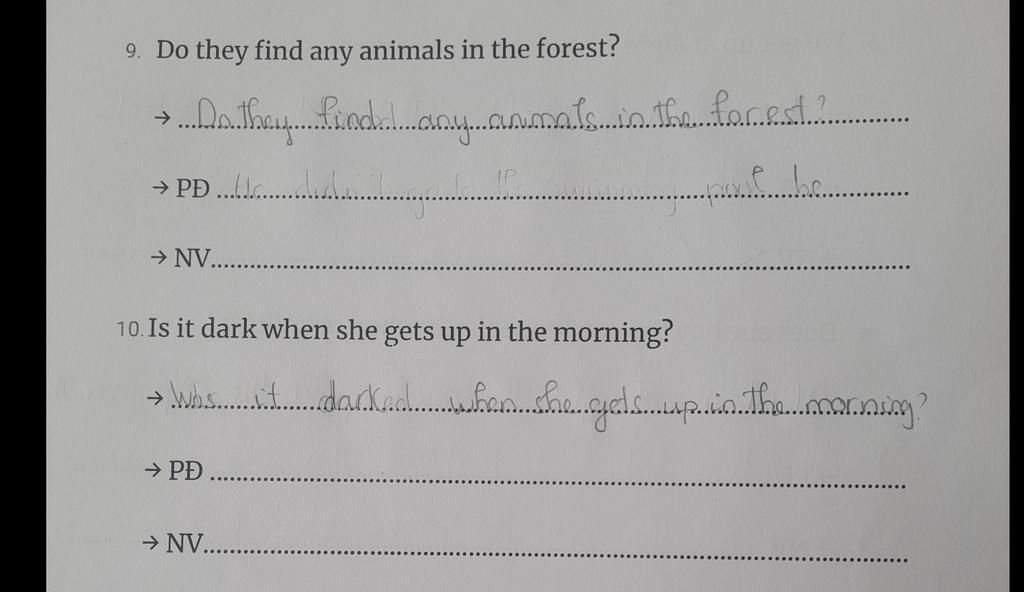 9. Do they find any animals in the forest?
→ Do they findd any animals in the forest?
→ PĐ He didn't go to the swimming pool he
→ NV
10. Is it dark when she gets up in the morning?
→ Was it darked when she gets up in the morning?
→ PĐ
→ NV